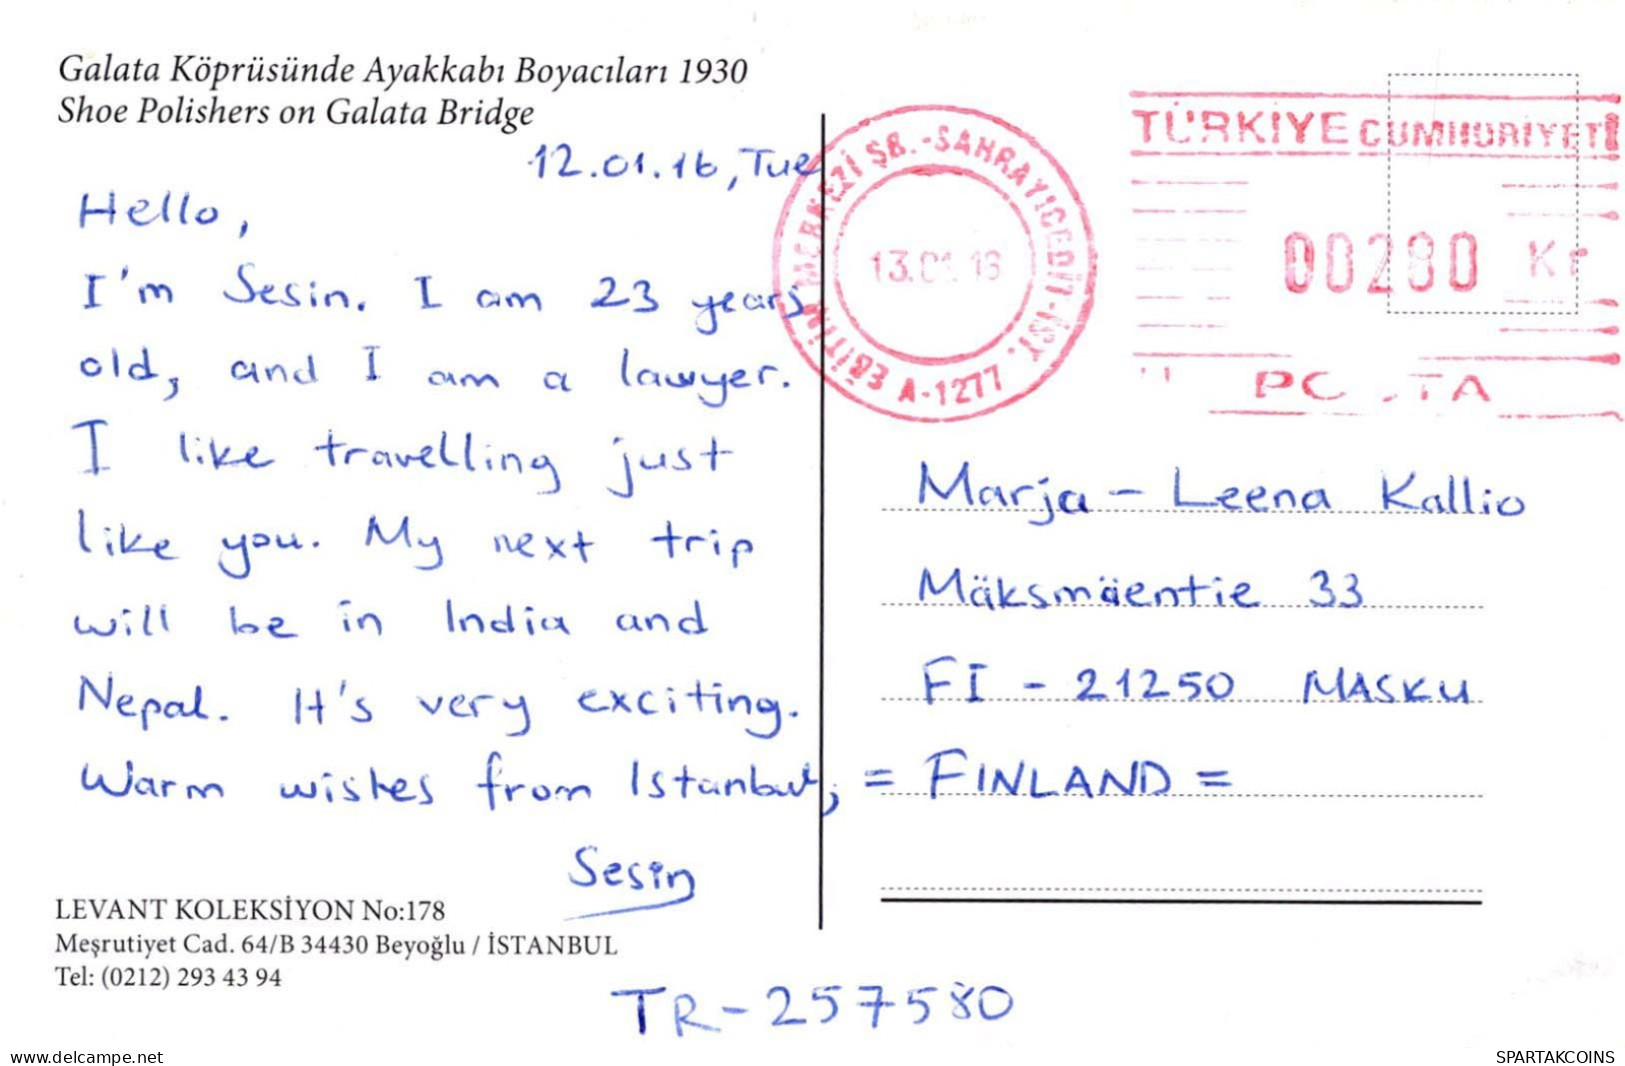 Galata Köprüsünde Ayakkabı Boyacıları 1930
Shoe Polishers on Galata Bridge
12.01.16, Tue
Hello,
I'm Sesin. I am 23 years
old, and I am a lawyer.
I like travelling just
like you. My next trip
will be in India and
Nepal. It's very exciting.
Warm wishes from Istanbul,
Sesin
LEVANT KOLEKSİYON No:178
Meşrutiyet Cad. 64/B 34430 Beyoğlu / İSTANBUL
Tel: (0212) 293 43 94
TR-257580
EĞİTİM MERKEZİ ŞB.-SAHRAYICEDİT-İST.
A-1277
13.01.16
TÜRKİYE CUMHURİYETİ
00280 Kr
Marja-Leena Kallio
Mäksmäentie 33
FI - 21250 MASKU
= FINLAND =
www.delcampe.net
SPARTAKCOINS